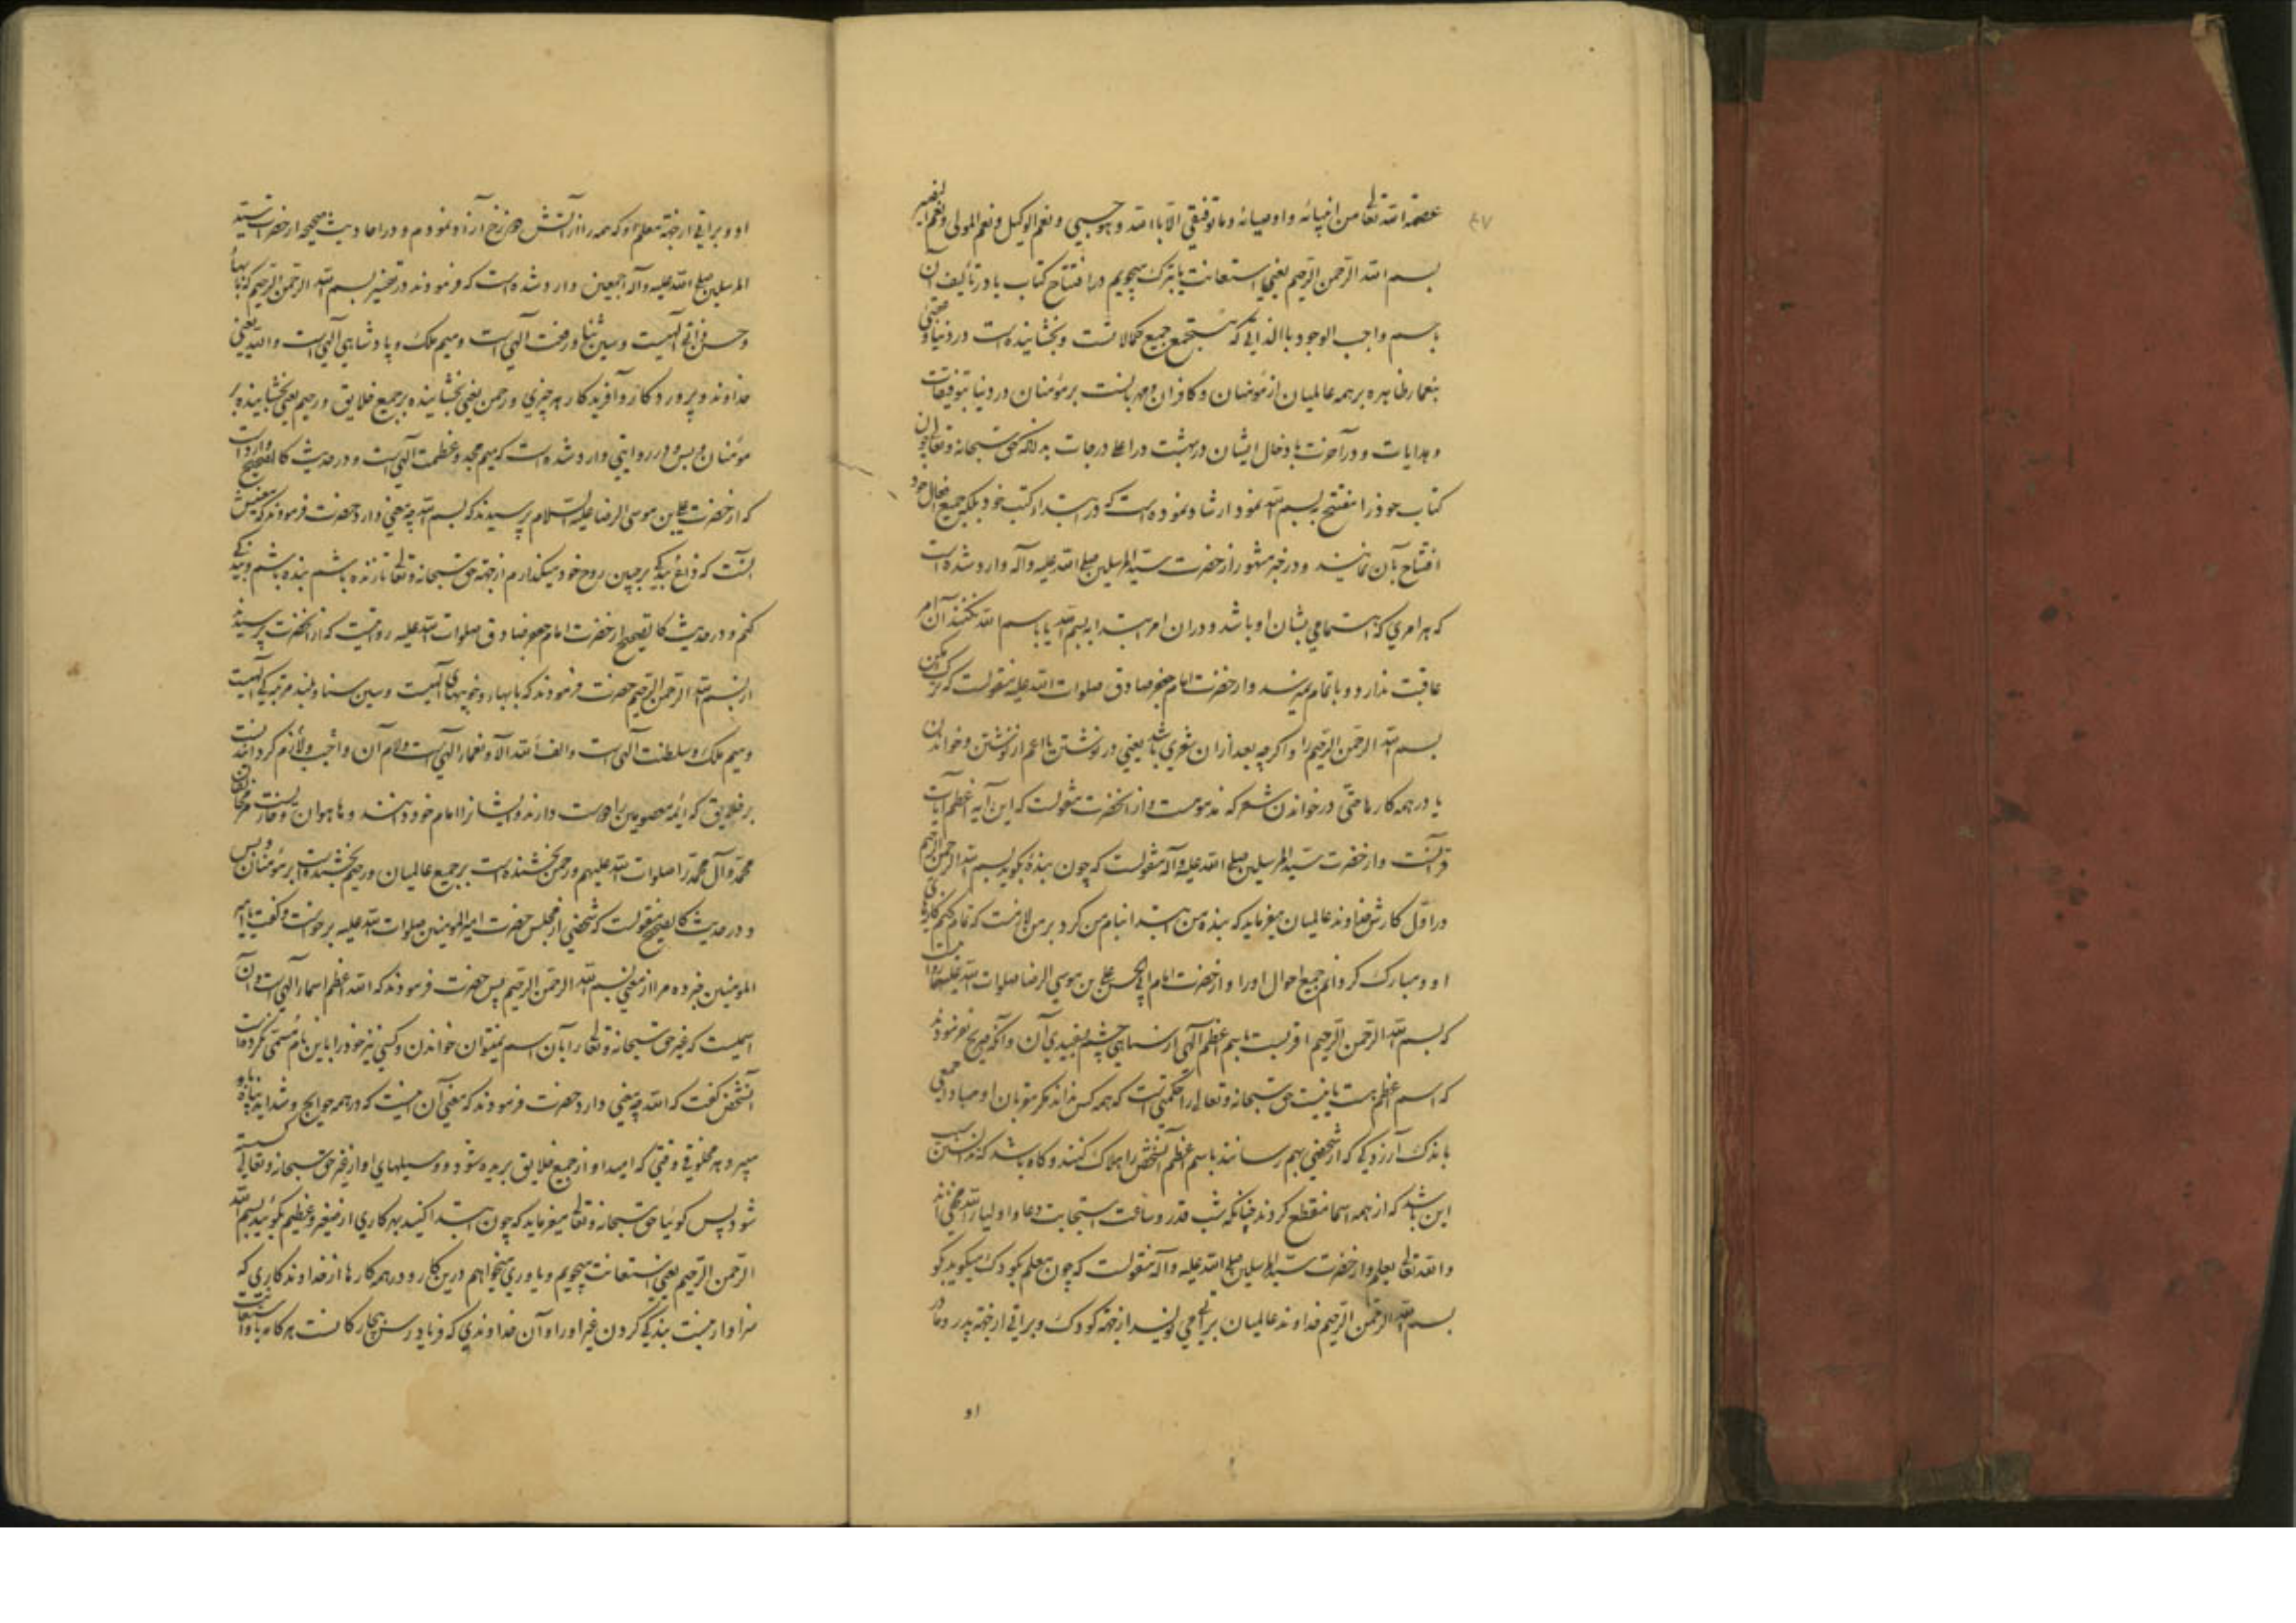 عصمه الله تعالی من انبیائه و اوصیائه و ما توفیقی الا بالله و هو حسبی و نعم الوکیل و نعم المولی و نعم النصیر
بسم الله الرحمن الرحیم یعنی استعانت یا تبرک میجویم در افتتاح کتاب یا در تألیف آن
باسم واجب الوجود بالذاتی که مستجمع جمیع کمالاتست و بخشاینده است در دنیا و عقبی
بنعماء ظاهره بر همه عالمیان از مؤمنان و کافران و مهربانست بر مؤمنان در دنیا بتوفیقات
و هدایات و در آخرت بادخال ایشان در بهشت در اعلا درجات بدانکه حق سبحانه و تعالی چون
کتاب خود را مفتتح ببسم الله نمود ارشاد نموده است که در ابتداء کتب خود بلکه جمیع افعال خود
افتتاح بآن نمایند و در خبر مشهور از حضرت سید المرسلین صلی الله علیه و آله وارد شده است
که هر امری که اهتمامی بشان او باشد و در آن امر ابتدا به بسم الله یا باسم الله نکنند آن امر
عاقبت ندارد و باتمام نمیرسد و از حضرت امام جعفر صادق صلوات الله علیه منقولست که ترک مکن
بسم الله الرحمن الرحیم را و اگرچه بعد از آن شعری باشد یعنی در نوشتن یا اعم از نوشتن و خواندن
یا در همه کارها حتی در خواندن شعر که مذمومست و از آنحضرت منقولست که این آیه اعظم آیات
قرآنست و از حضرت سید المرسلین صلی الله علیه و آله منقولست که چون بنده بگوید بسم الله الرحمن الرحیم
در اول کارش خداوند عالمیان میفرماید که بنده من ابتدا بنام من کرد بر من لازمست که تمام کنم کارهای
او و مبارک گردانم جمیع احوال او را و از حضرت امام ابی الحسن علی بن موسی الرضا صلوات الله علیهما
که بسم الله الرحمن الرحیم اقربست باسم اعظم الهی از سیاهی چشم بسفیدی آن و آنکه صریح نفرمودند
که اسم اعظم است یا نیست حق سبحانه و تعالی را حکمتی است که همه کس نداند مگر مقربان او مبادا جمعی
باندک آزردگی که از شخصی بهم رسانند باسم اعظم آنشخص را هلاک کنند و گاه باشد که
این باشد که از همه اسما منقطع گردند چنانکه شب قدر و ساعت استجابت دعا و اولیاء الله مخفی‌اند
و الله تعالی یعلم و از حضرت سید المرسلین صلی الله علیه و آله منقولست که چون معلم بکودک میگوید بگو
بسم الله الرحمن الرحیم خداوند عالمیان براتی می‌نویسد از جهة کودک و براتی از جهة پدر و مادر
او
او و براتی از جهة معلم او که همه را از آتش دوزخ آزاد نمودم و در احادیث صحیحه از حضرت سید
المرسلین صلی الله علیه و آله اجمعین وارد شده است که فرمودند در تفسیر بسم الله الرحمن الرحیم که با بهاء
و حسن ذاتی الهیست و سین ثنا و رفعت الهی است و میم ملک و پادشاهی الهی است و الله یعنی
خداوند و پروردگار و آفریدگار هر چیزی و رحمن یعنی بخشاینده بر جمیع خلایق و رحیم یعنی بخشاینده بر
مؤمنان و بس و در روایتی وارد شده است که میم مجد و عظمت الهی است و در حدیث کالصحیح وارد است
که از حضرت علی بن موسی الرضا علیه السلام پرسیدند که بسم الله چه معنی دارد حضرت فرمودند که معنیش
آنست که داغ بندگی بر جبین روح خود میگذارم از جهة حق سبحانه و تعالی تا زنده باشم بنده باشم و بندگی
کنم و در حدیث کالصحیح از حضرت امام جعفر صادق صلوات الله علیه روایتست که از آنحضرت پرسیدند
از بسم الله الرحمن الرحیم حضرت فرمودند که با بهاء و خوبیهای الهیست و سین سنا و بلند مرتبگی الهیست
و میم ملک و سلطنت الهی است و الف الله آلاء و نعماء الهی است و لام آن واجب و لازم گردانیدنست
بر خلایق که ائمه معصومین را دوست دارند و ایشانرا امام خود دانند و ها هوان و خاریست مر مخالفان
محمد و آل محمد را صلوات الله علیهم و رحمن بخشنده است بر جمیع عالمیان و رحیم بخشنده است بر مؤمنان و بس
و در حدیث کالصحیح منقولست که شخصی از مجلس حضرت امیر المؤمنین صلوات الله علیه برخواست و گفت یا امیر
المومنین خبر ده مرا از معنی بسم الله الرحمن الرحیم پس حضرت فرمودند که الله اعظم اسماء الهی است و آن
اسمیست که غیر حق سبحانه و تعالی را بآن اسم نمیتوان خواندن و کسی نیز خود را باین نام مسمی نکرده است
آنشخص گفت که الله چه معنی دارد حضرت فرمودند که معنی آن اینست که در همه حوایج و شداید پناه باو
میبرد هر مخلوقی وقتی که امید او از جمیع خلایق بریده شود و وسیلهای او از غیر حق سبحانه و تعالی گسسته
شود پس گوئیا حق سبحانه و تعالی میفرماید که چون ابتدا کنید بهر کاری از صغیر و عظیم بگوئید بسم الله
الرحمن الرحیم یعنی استعانت میجویم و یاوری میخواهم درین کار و در همه کارها از خداوندگاری که
سزاوار نیست بندگی کردن غیر او را و آن خداوندی که فریادرس بیچارگانست هرگاه باو استغاثه